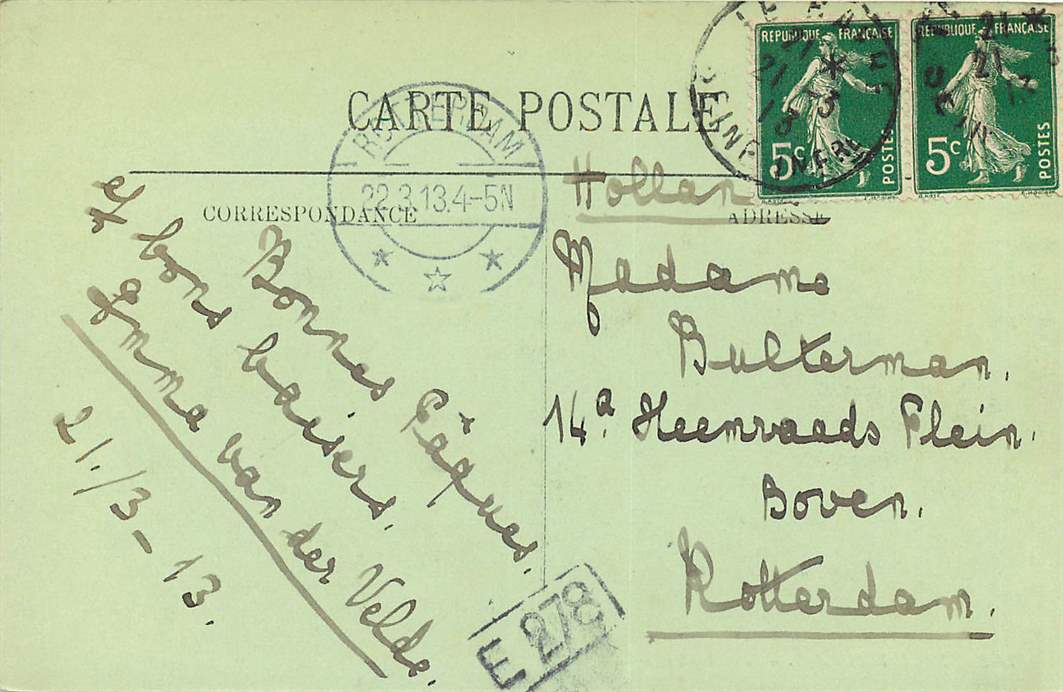 CARTE POSTALE
CORRESPONDANCE
ADRESSE
REPUBLIQUE FRANÇAISE
5c
POSTES
REPUBLIQUE FRANÇAISE
5c
POSTES
ROTTERDAM
22.3.13.4-5N
Bonnes Pâques.
et bons baisers.
Emma van der Velde.
21/3-13.
Madame
Bulterman.
14a. Heemraads Plein.
Boven.
Rotterdam.
E 278